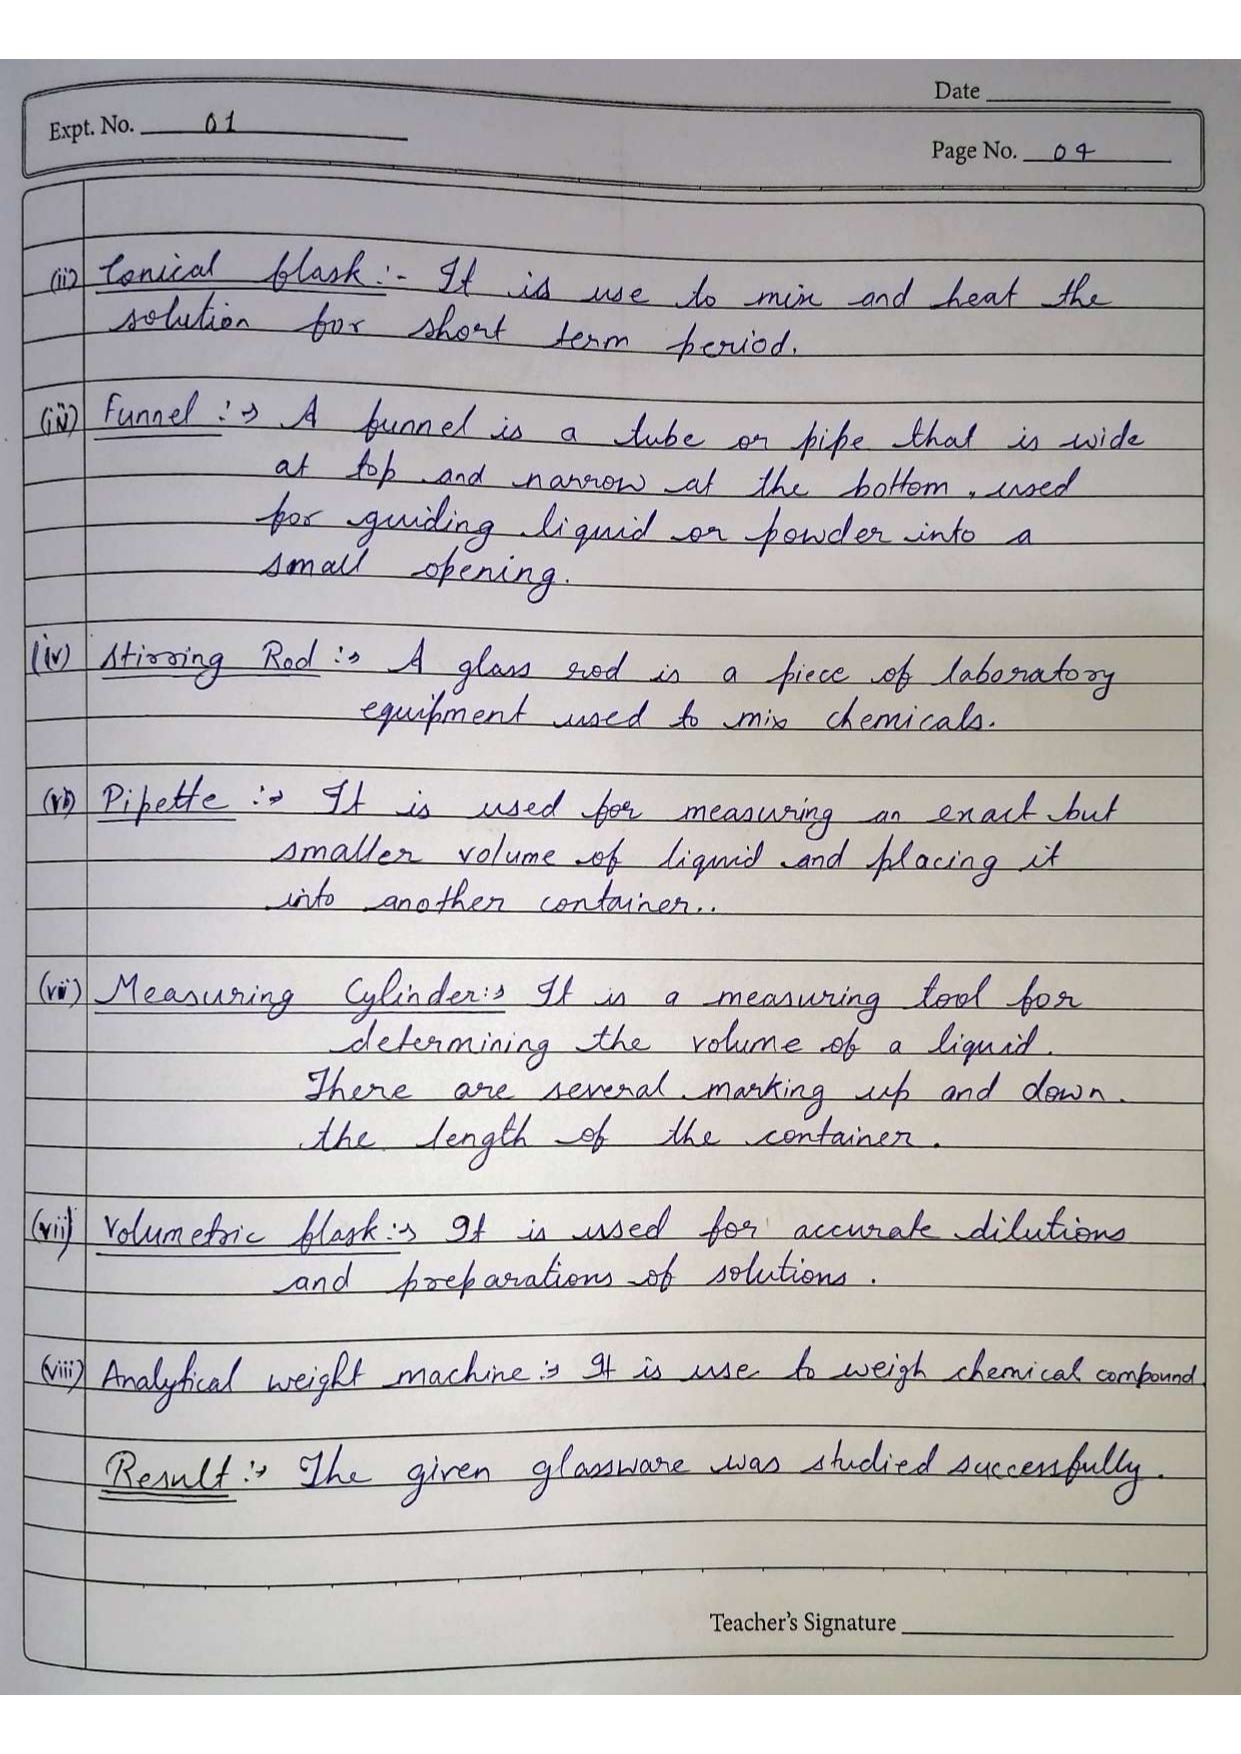 Date
Expt. No. 01
Page No. 04
(ii) Conical flask :- It is use to mix and heat the
solution for short term period.
(iii) Funnel :→ A funnel is a tube or pipe that is wide
at top and narrow at the bottom, used
for guiding liquid or powder into a
small opening.
(iv) Stirring Rod :→ A glass rod is a piece of laboratory
equipment used to mix chemicals.
(vi) Pipette :→ It is used for measuring an exact but
smaller volume of liquid and placing it
into another container..
(vii) Measuring Cylinder :→ It is a measuring tool for
determining the volume of a liquid.
There are several marking up and down.
the length of the container.
(vii) Volumetric flask :→ It is used for accurate dilutions
and preparations of solutions.
(viii) Analytical weight machine :→ It is use to weigh chemical compound.
Result :→ The given glassware was studied successfully.
Teacher's Signature